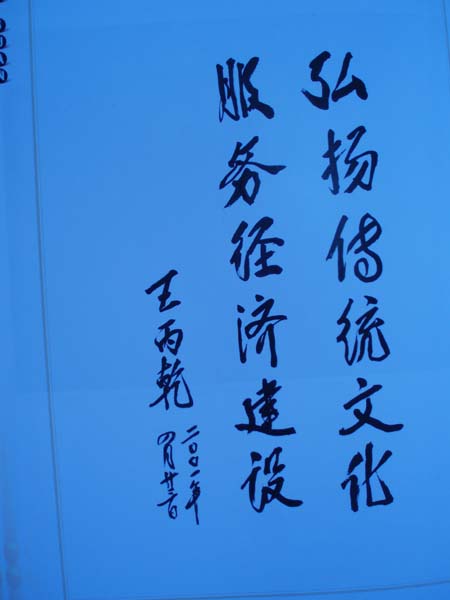 弘扬传统文化
服务经济建设
王丙乾
二〇〇一年
四月